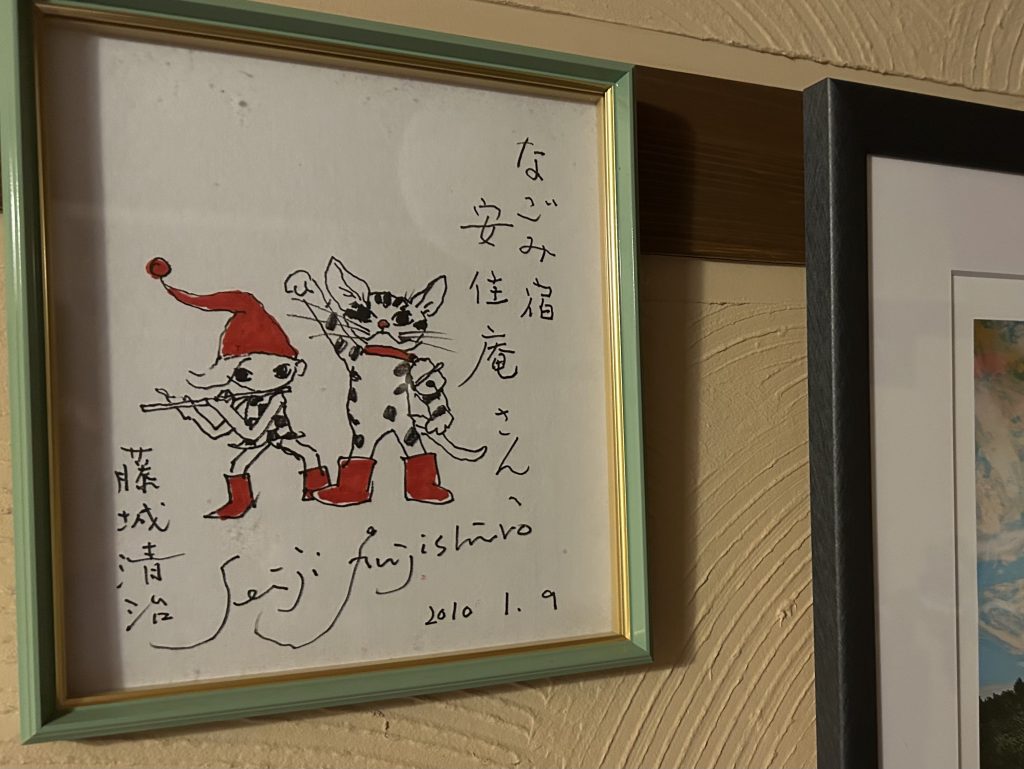 なごみ宿
安住庵さん、
藤城清治
Seiji Fujishiro
2010 1. 9